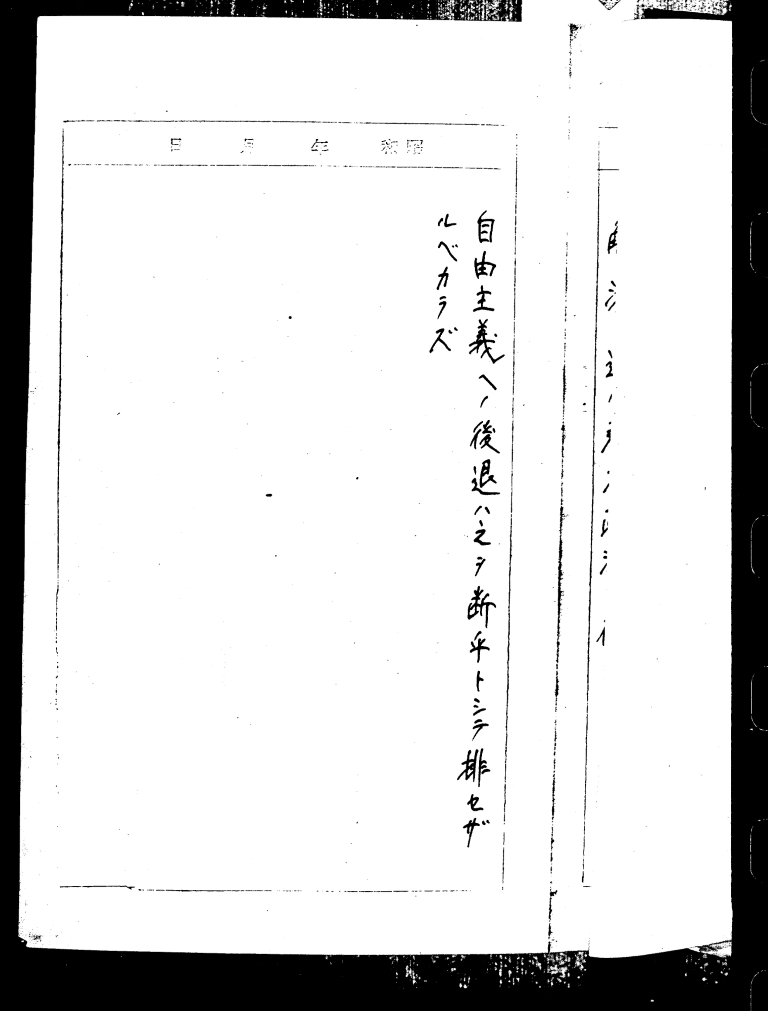 昭和 年 月 日
自由主義ヘノ後退ハ之ヲ断乎トシテ排セザ
ルベカラズ